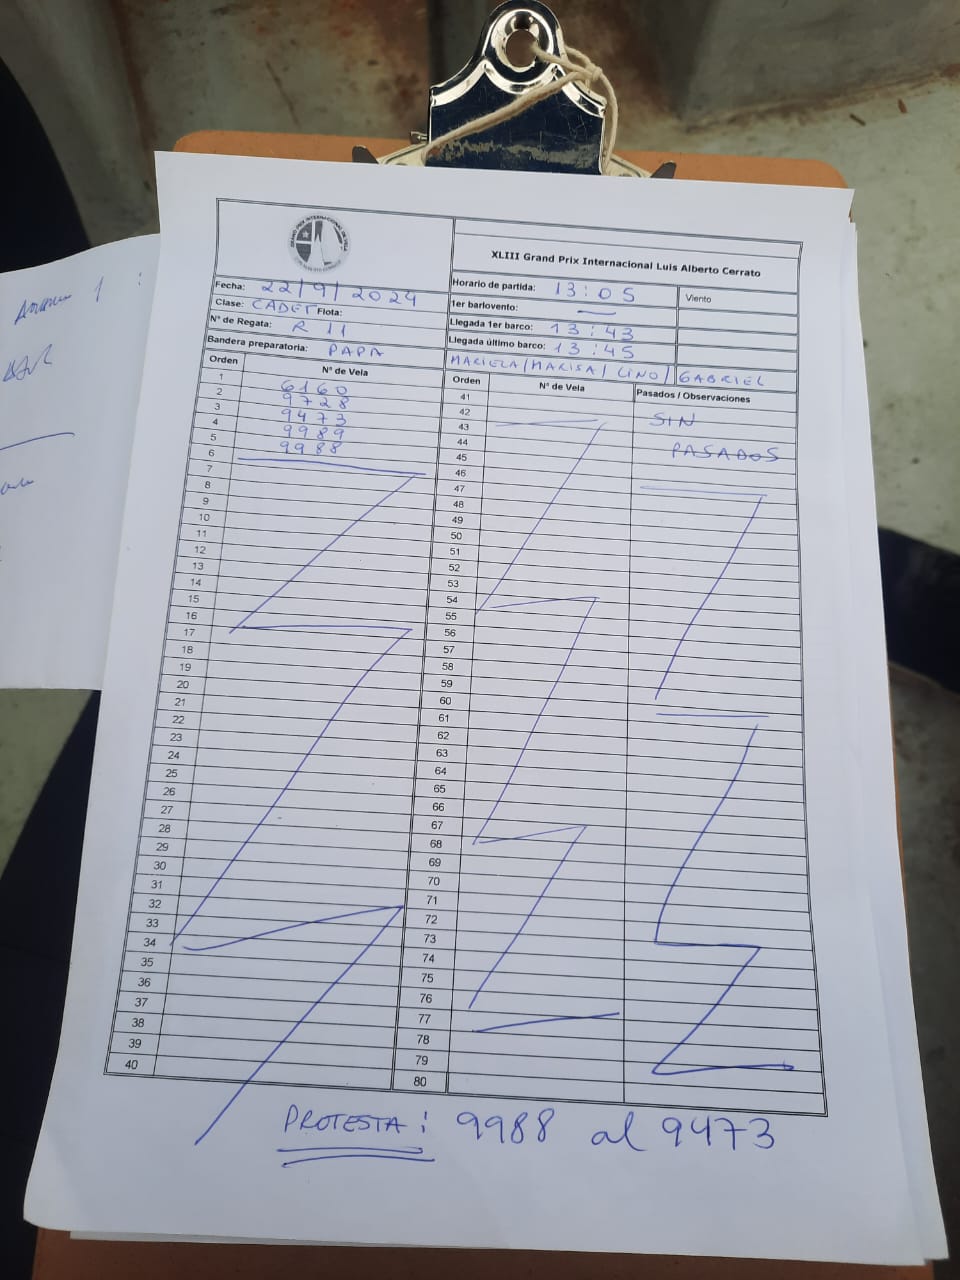 XLIII Grand Prix Internacional Luis Alberto Cerrato
Fecha: 22/9/2024
Clase: CADET Flota:
N° de Regata: R 11
Bandera preparatoria: PAPA
Horario de partida: 13:05
Viento
1er barlovento: —
Llegada 1er barco: 13:43
Llegada último barco: 13:45
MARIELA/MARISA/LINO/GABRIEL
Orden N° de Vela
1 6160
2 9728
3 9473
4 9989
5 9988
6
7
8
9
10
11
12
13
14
15
16
17
18
19
20
21
22
23
24
25
26
27
28
29
30
31
32
33
34
35
36
37
38
39
40
Orden N° de Vela
41
42
43
44
45
46
47
48
49
50
51
52
53
54
55
56
57
58
59
60
61
62
63
64
65
66
67
68
69
70
71
72
73
74
75
76
77
78
79
80
Pasados / Observaciones
SIN
PASADOS
PROTESTA: 9988 al 9473